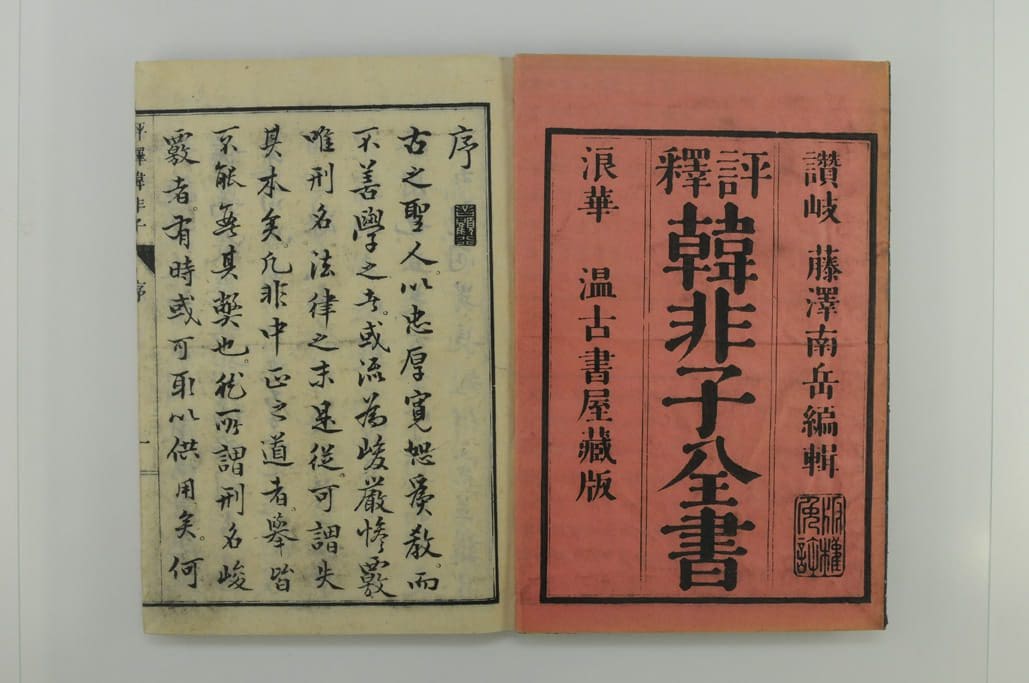 讚岐 藤澤南岳編輯
版權免許
評釋
韓非子全書
浪華 温古書屋藏版
序
古之聖人。以忠厚寛恕爲教。而
不善學之者。或流為峻嚴惨覈
唯刑名法律之末是従。可謂失
其本矣。凡非中正之道者。舉皆
不能無其弊也。然所謂刑名峻
覈者。有時或可取以供用矣。何
評釋韓非子 序 一